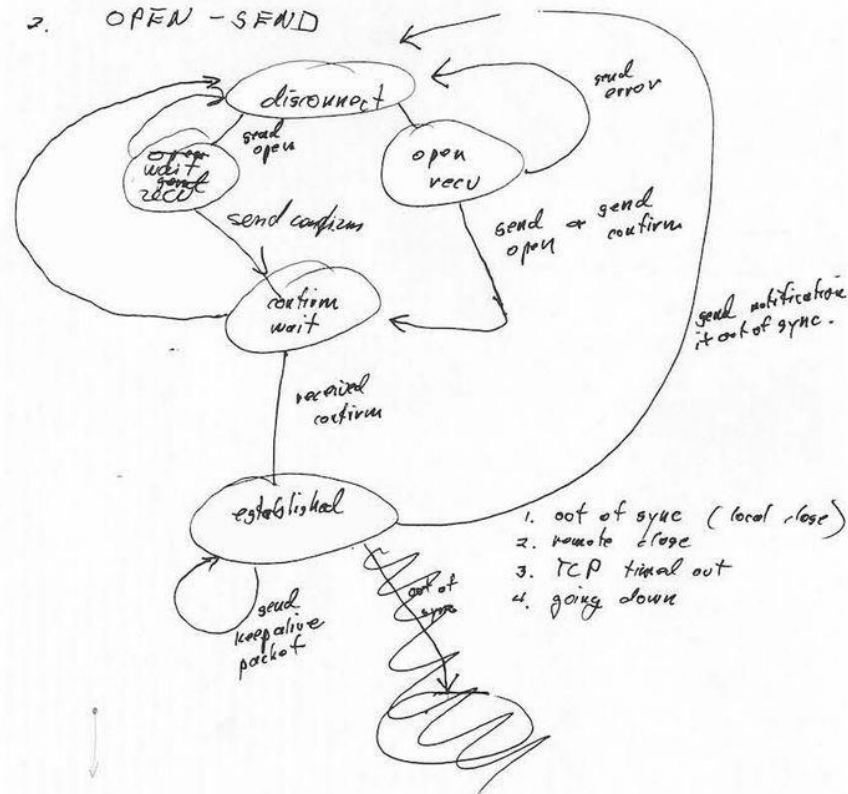 2. OPEN - SEND
disconnect
send
error
send
open
open
recv
wait
recv
send confirm
send or send
open confirm
confirm
wait
send notification
if out of sync.
received
confirm
established
1. out of sync (local close)
2. remote close
3. TCP timed out
4. going down
out of
sync
send
keepalive
packet